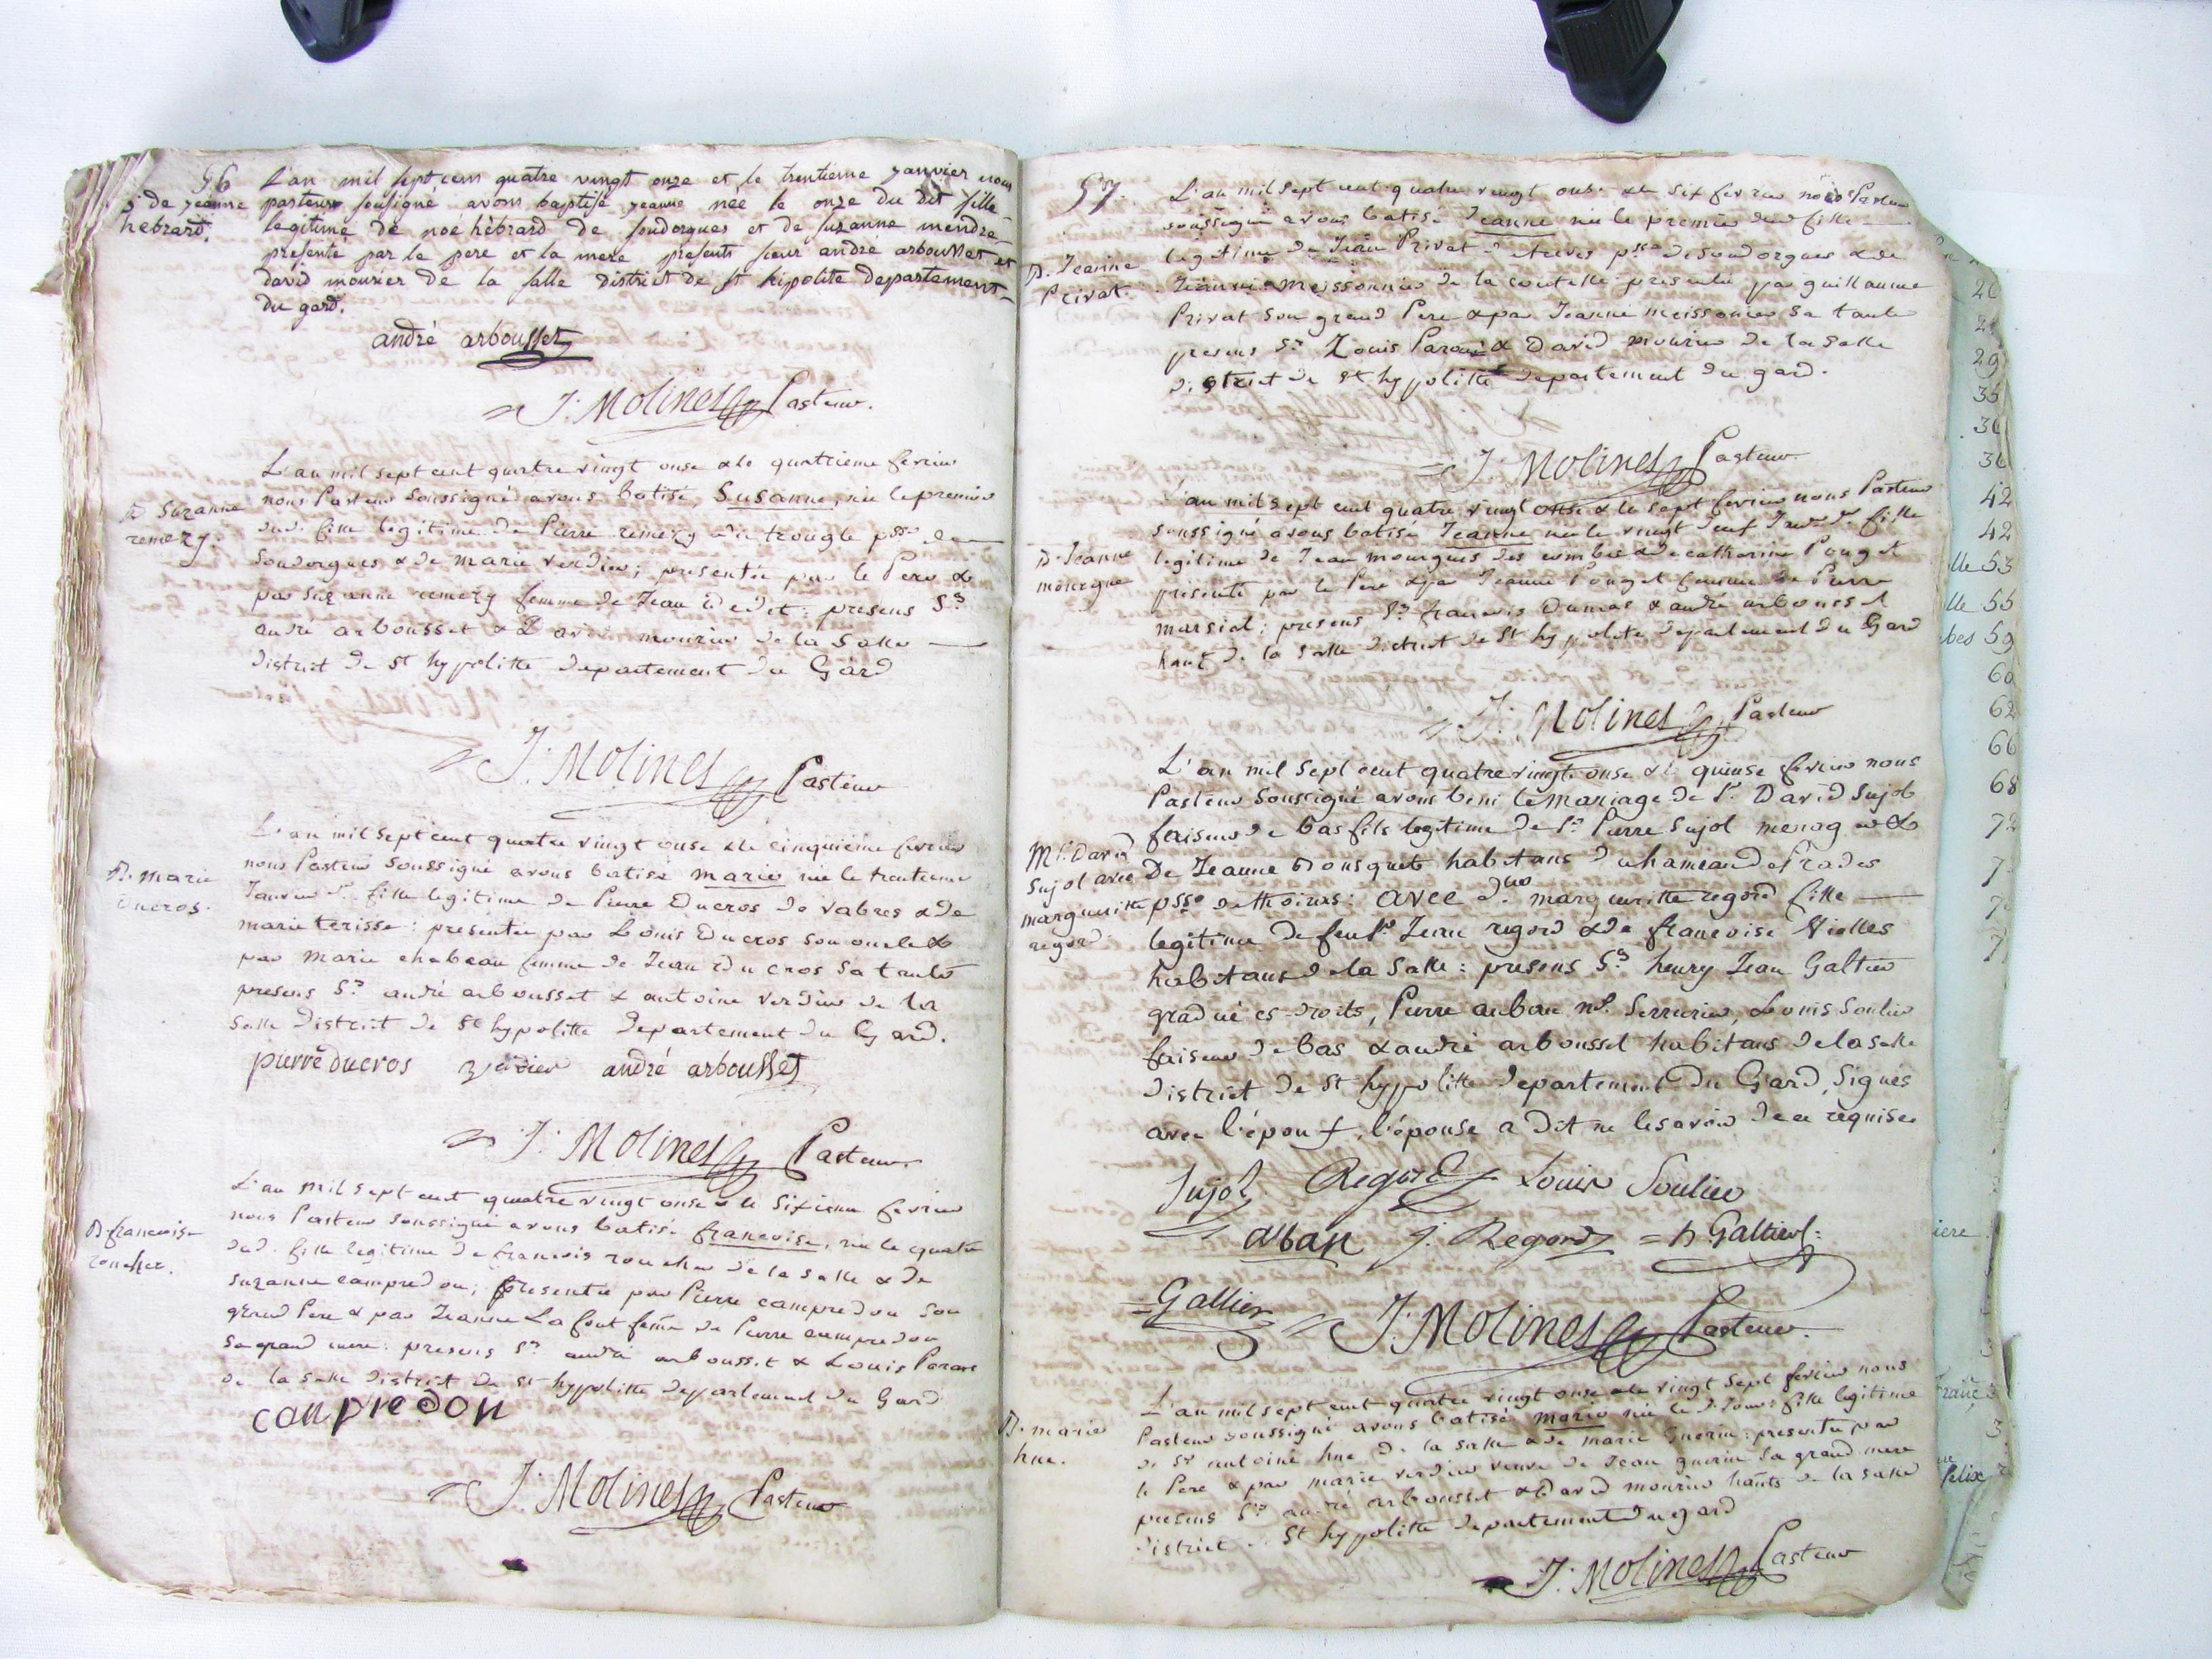 56
L'an mil sept cens quatre vingt onze et le trentieme janvier nous
B de jeanne
hebrard.
pasteur sousigné avons baptisé jeanne née le onze du dit fille
legitime de noé hébrard de soudorgues et de suzanne
presenté par le pere et la mere presents sieur andré arbousset et
david mourier de la salle district de st hipolite departement
du gard.
andré arbousset
J. Molines Pasteur.
L'an mil sept cent quatre vingt onse & le quatrieme fevrier
B Suzanne
remezy.
nous Pasteur soussigné avons batisé Susanne, née le premier
dud. fille legitime de Pierre remezy de trougle psse de
Soudorgues & de marie verdier; presentée par le Pere &
par Suzanne remezy femme de Jean : presens Srs
andré arbousset & David mourier de la Salle
district de st hypolitte departement du Gard
J. Molines Pasteur
L'an mil sept cent quatre vingt onse & le cinquieme fevrier
B. marie
ducros.
nous Pasteur soussigné avons batisé marie née le trentieme
Janvier dr. fille legitime de Pierre Ducros de vabres & de
marie terisse: presentée par Louis Ducros son oncle &
par marie chabeau femme de Jean Ducros sa tante
presens Srs andré arbousset & antoine verdier de la
Salle district de st hypolitte departement du Gard.
pierre ducros verdier andré arbousset
J. Molines Pasteur.
L'an mil sept cent quatre vingt onse & le sixieme fevrier
B francoise
roucher.
nous Pasteur soussigné avons batisé francoise, née le quatre
dud. fille legitime de francois roucher de la salle & de
suzanne campredon; presentée par Pierre campredon son
grand Pere & par Jeanne Lafont feme de Pierre campredon
sa grand mere: presens Srs andré arbousset & Louis
de la salle district de st hypolitte departement du Gard
campredon
J. Molines Pasteur
57.
L'an mil sept cent quatre vingt onse & le six fevrier nous Pasteur
soussigné avons batisé Jeanne née le premier dud fille
B. Jeanne
Privat.
legitime de Jean Privat d psse de Soudorgues & de
meissonnier de la coutelle presentée par guillaume
Privat son grand Pere & par Jeanne meissonier sa tante
presens Srs Louis & David mourier de la Salle
district de st hypolitte departement du gard.
J. Molines Pasteur.
L'an mil sept cent quatre vingt onse & le sept fevrier nous Pasteur
soussigné avons batisé Jeanne née le vingt neuf Janvr dr. fille
B. Jeanne
mourgue
legitime de Jean mourgues des & de catherine Pouget
presenté par le Pere & par Jeanne Pouget femme de Pierre
marsial; presens Srs francois Dumas & andré arbousset
hants de la salle district de st hypolite departement du Gard
J. Molines Pasteur
L'an mil sept cent quatre vingt onse & le quinse fevrier nous
Pasteur Soussigné avons beni le mariage de Sr. David Sujol
faiseur de bas fils legitime de Sr Pierre Sujol menager &
M. David
Sujol avec
margueritte
regord.
De Jeanne Bousquet habitans du hameau de Prades
psse de thoiras: avec dlle margueritte regord fille
legitime de feu Sr. Jean regord & de francoise Vielles
habitans de la Salle: presens Srs henry Jean Galtier
gradué es-droits, Pierre auban me. Serrurier, Louis Soulier
faiseur de bas & andré arbousset habitans de la Salle
district de st hypolitte departement du Gard, Signés
avec l'époux, l'épouse a dit ne le savoir de ce requise
Sujol Regord Louis Soulier
alban j. Regord h Galtier
Galtier J. Molines Pasteur.
L'an mil sept cent quatre vingt onse & le vingt sept fevrier nous
B. marie
hue.
Pasteur soussigné avons batisé marie née le fille legitime
de Sr antoine hue de la salle & de marie Guerin: presentée par
le Pere & par marie verdier veuve de Jean guerin sa grand mere
presens Srs andré arbousset & David mourier hants de la salle
district de st hypolitte departement du gard
J. Molines Pasteur
29
35
42
42
lle 53
lle 55
bes 59
62
66
68
felix